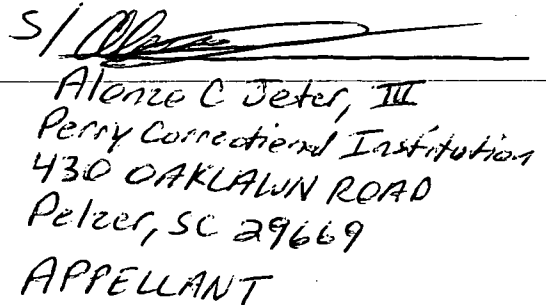 S/
Alonzo C Jeter, III
Perry Correctional Institution
430 OAKLAWN ROAD
Pelzer, SC 29669
APPELLANT